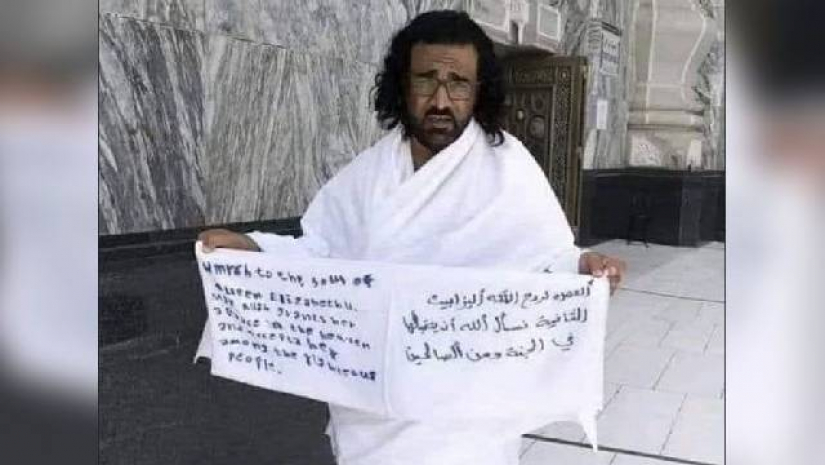 Umrah to the soul of
Queen Elizabeth II.
may Allh grants her
a place in the heaven
and accepts her
among the righteous
people.
العمره لروح الملكه اليزابيث
الثانية نسأل الله أن يتقبلها
في الجنة ومن الصالحين